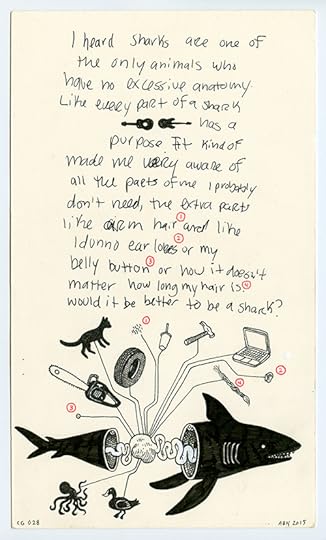 I heard sharks are one of
the only animals who
have no excessive anatomy.
Like every part of a shark
has a
purpose. It kind of
made me very aware of
all the parts of me I probably
don't need, the extra parts
like arm hair ① and like
I dunno ear lobes ② or my
belly button ③ or how it doesn't
matter how long my hair is ④
would it be better to be a shark?
①
②
④
③
CG 028
NOV 2015